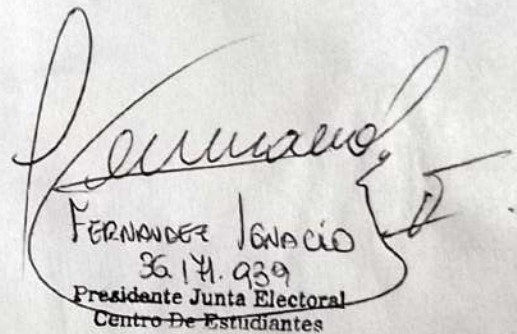 FERNANDEZ IGNACIO
36.171.939
Presidente Junta Electoral
Centro De Estudiantes